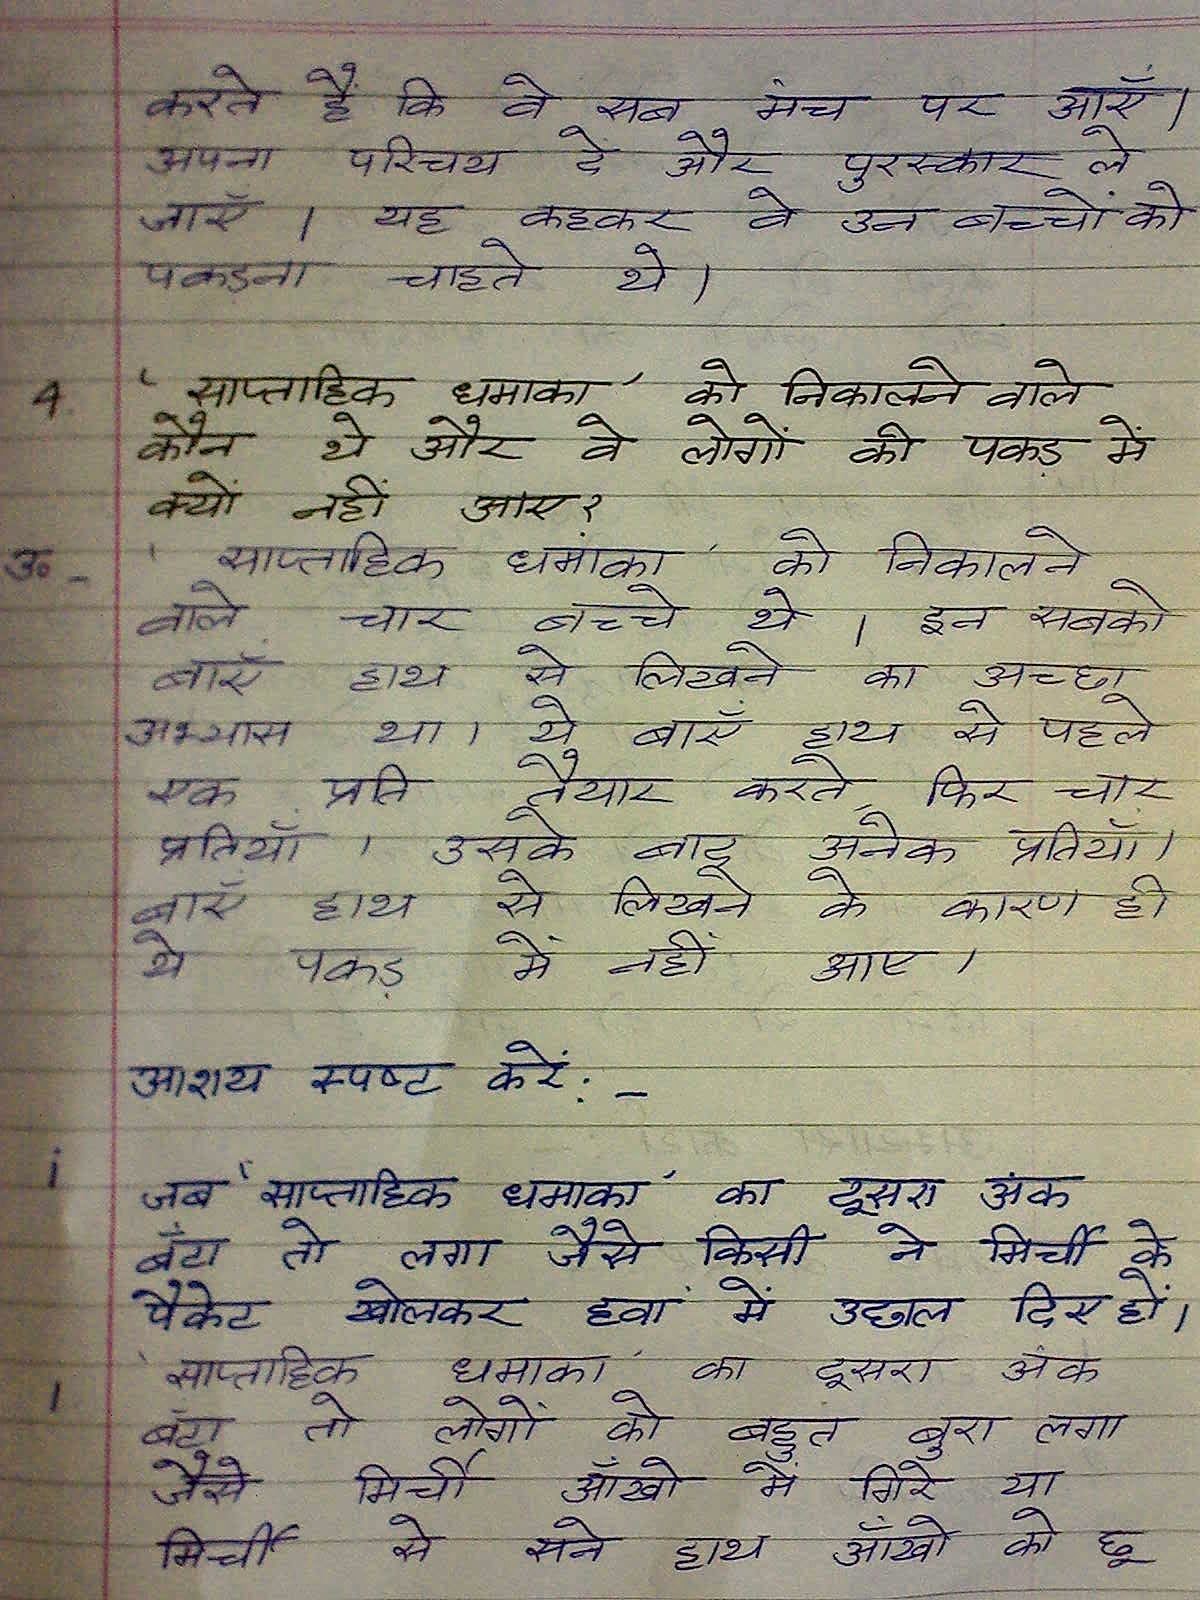 करते हैं कि वे सब मंच पर आएँ।
अपना परिचय दें और पुरस्कार ले
जाएँ । यह कहकर वे उन बच्चों को
पकड़ना चाहते थे।
4. 'साप्ताहिक धमाका' को निकालने वाले
कौन थे और वे लोगों की पकड़ में
क्यों नहीं आए?
उ०- 'साप्ताहिक धमाका' को निकालने
वाले चार बच्चे थे । इन सबको
बाएँ हाथ से लिखने का अच्छा
अभ्यास था। ये बाएँ हाथ से पहले
एक प्रति तैयार करते, फिर चार
प्रतियाँ । उसके बाद अनेक प्रतियाँ।
बाएँ हाथ से लिखने के कारण ही
ये पकड़ में नहीं आए ।
आशय स्पष्ट करें:-
i जब 'साप्ताहिक धमाका' का दूसरा अंक
बँटा तो लगा जैसे किसी ने मिर्ची के
पैकेट खोलकर हवा में उछाल दिए हों।
। 'साप्ताहिक धमाका' का दूसरा अंक
बँटा तो लोगों को बहुत बुरा लगा
जैसे मिर्ची आँखो में गिरे या
मिर्ची से सने हाथ आँखो को छू